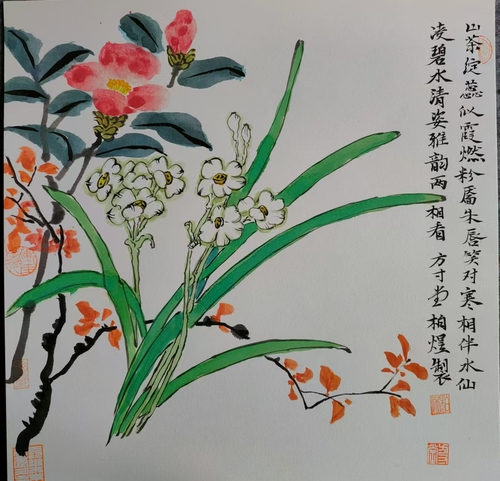 山茶绽蕊似霞燃粉靥朱唇笑对寒相伴水仙
凌碧水清姿雅韵两相看 方寸堂柏煜製